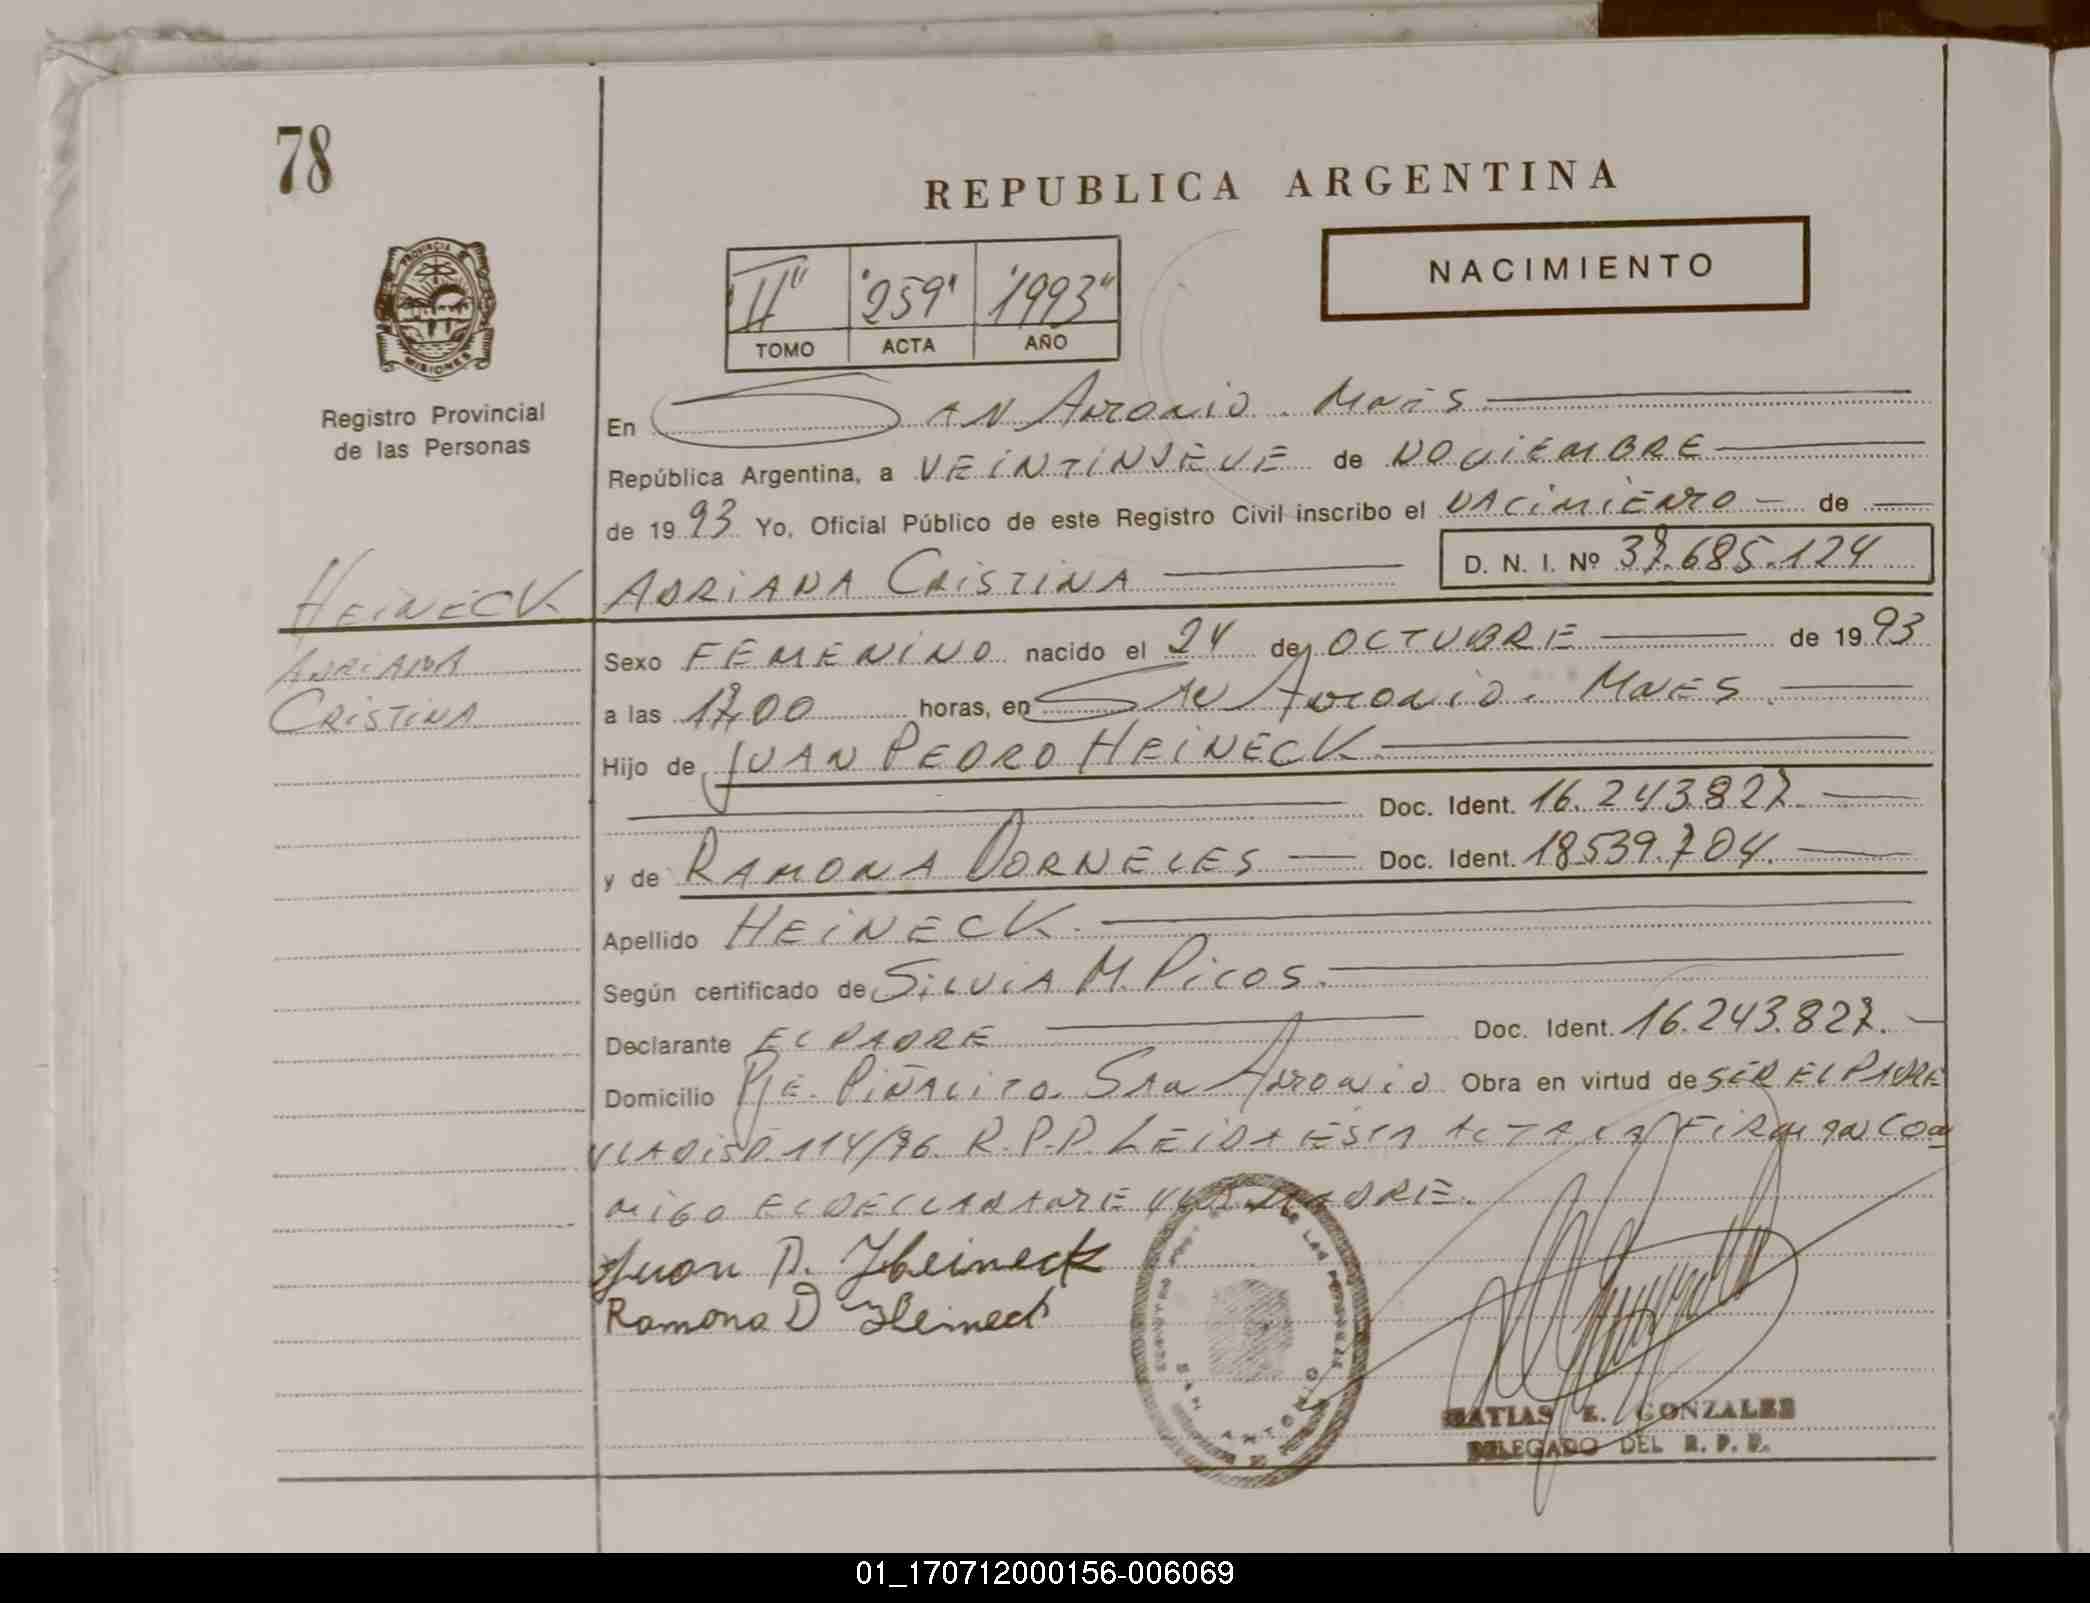 78
REPUBLICA ARGENTINA
NACIMIENTO
"II" "259" "1993"
TOMO ACTA AÑO
PROVINCIA DE
MISIONES
Registro Provincial
de las Personas
En SAN ANTONIO. MNES
República Argentina, a VEINTINUEVE de NOVIEMBRE
de 1993 Yo, Oficial Público de este Registro Civil inscribo el NACIMIENTO de
HEINECK ADRIANA CRISTINA D. N. I. Nº 37.685.124
ADRIANA
CRISTINA
Sexo FEMENINO nacido el 24 de OCTUBRE de 1993
a las 17,00 horas, en SAN ANTONIO. MNES.
Hijo de JUAN PEDRO HEINECK
Doc. Ident. 16.243.827
y de RAMONA DORNELES Doc. Ident. 18539.704.
Apellido HEINECK.
Según certificado de SILVIA M. PICOS.
Declarante EL PADRE Doc. Ident. 16.243.827.
Domicilio PJE. PIÑALITO. SAN ANTONIO Obra en virtud de SER EL PADRE
Y LA DISP. 114/86. R.P.P. LEIDA ESTA ACTA LA FIRMAN CON
MIGO EL DECLARANTE Y LA MADRE.
Juan P. Heineck
Ramona D Heineck
SAN ANTONIO
MATIAS E. GONZALES
DELEGADO DEL R. P. P.
01_170712000156-006069